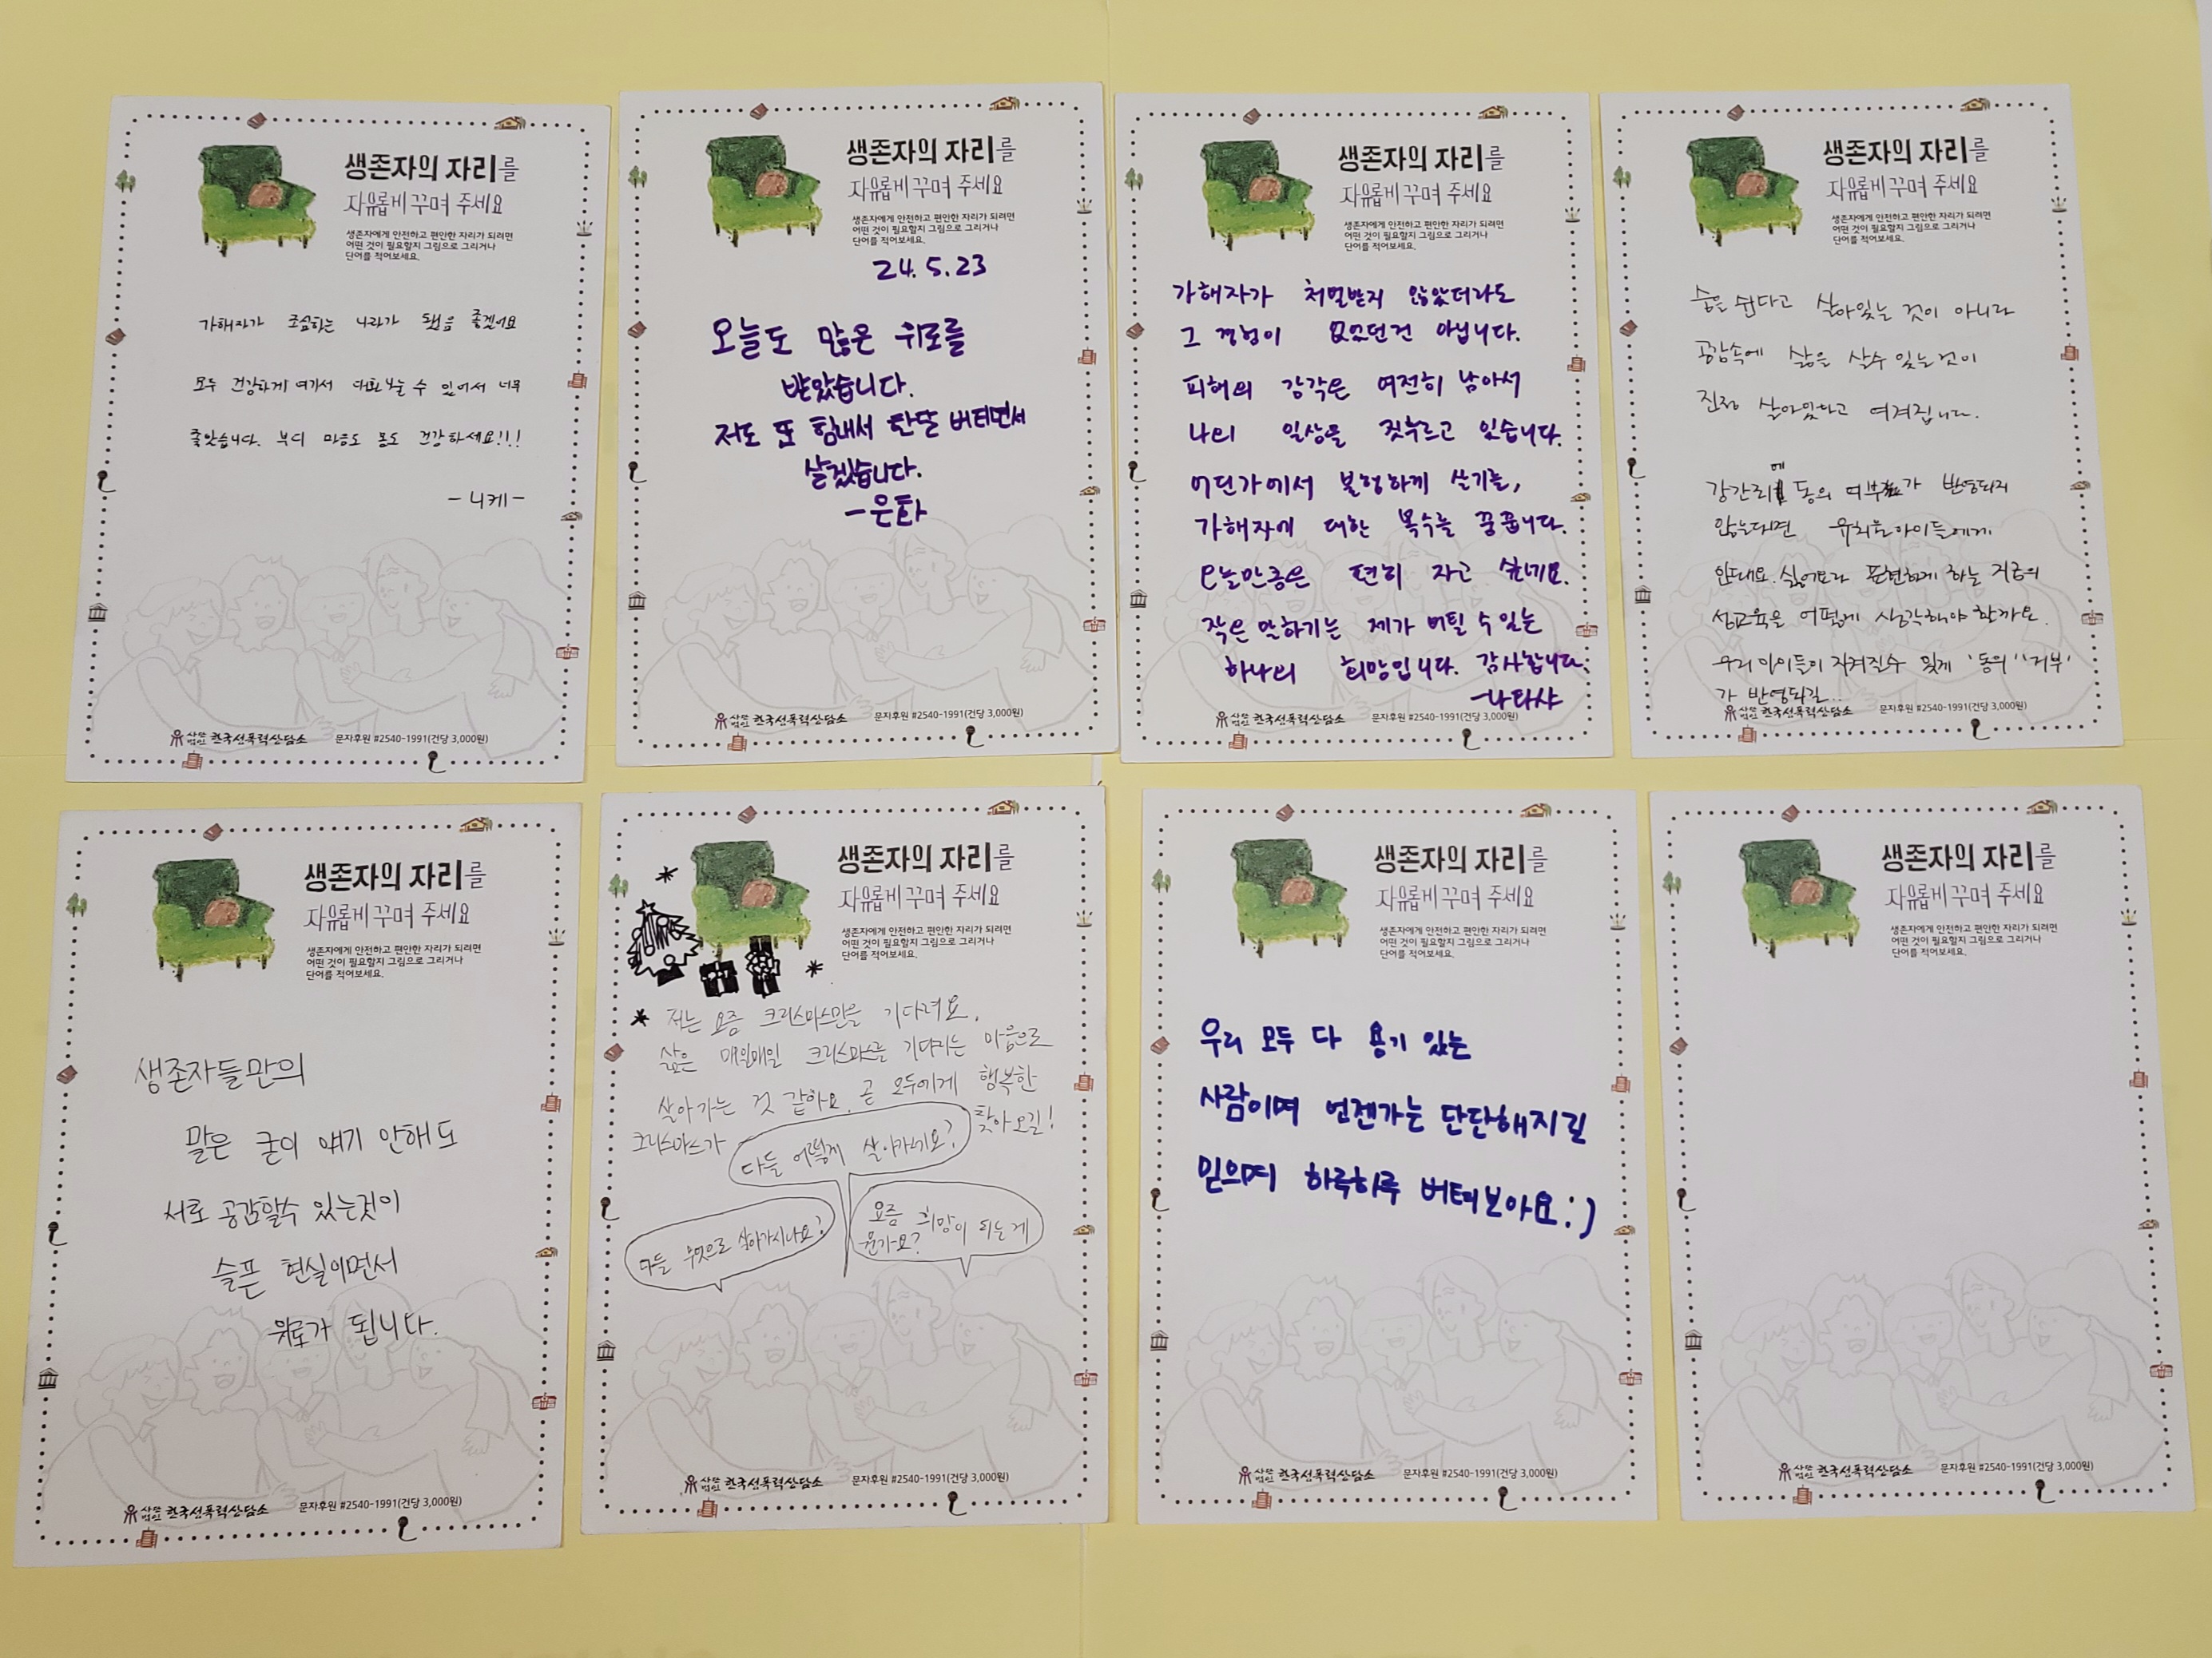 생존자의 자리를
자유롭게 꾸며 주세요
생존자에게 안전하고 편안한 자리가 되려면
어떤 것이 필요할지 그림으로 그리거나
단어를 적어보세요.
가해자가 조심하는 나라가 됐음 좋겠어요
모두 건강하게 여기서 대화 나눌 수 있어서 너무
좋았습니다. 부디 마음도 몸도 건강하세요!!!
-니케-
사단법인 한국성폭력상담소 문자후원 #2540-1991(건당 3,000원)
생존자의 자리를
자유롭게 꾸며 주세요
생존자에게 안전하고 편안한 자리가 되려면
어떤 것이 필요할지 그림으로 그리거나
단어를 적어보세요.
24.5.23
오늘도 많은 위로를
받았습니다.
저도 또 힘내서 단단 버티면서
살겠습니다.
-은탁
사단법인 한국성폭력상담소 문자후원 #2540-1991(건당 3,000원)
생존자의 자리를
자유롭게 꾸며 주세요
생존자에게 안전하고 편안한 자리가 되려면
어떤 것이 필요할지 그림으로 그리거나
단어를 적어보세요.
가해자가 처벌받지 않았더라도
그 경험이 없었던건 아닙니다.
피해의 감각은 여전히 남아서
나의 일상을 짓누르고 있습니다.
어딘가에서 불행하게 살기를,
가해자에 대한 복수를 꿈꿉니다.
오늘만큼은 편히 자고 싶네요.
작은 말하기는 제가 버틸 수 있는
하나의 희망입니다. 감사합니다.
-나타샤
사단법인 한국성폭력상담소 문자후원 #2540-1991(건당 3,000원)
생존자의 자리를
자유롭게 꾸며 주세요
생존자에게 안전하고 편안한 자리가 되려면
어떤 것이 필요할지 그림으로 그리거나
단어를 적어보세요.
숨을 쉰다고 살아있는 것이 아니라
공감속에 삶을 살수 있는것이
진정 살아있다고 여겨집니다.
강간죄에 동의 여부가 반영되지
않는다면 유치원아이들에게
안돼요. 싫어요라 표현하게 하는 지금의
성교육을 어떻게 생각해야 할까요.
우리 아이들이 지켜질수 있게 '동의' '거부'
가 반영되길...
사단법인 한국성폭력상담소 문자후원 #2540-1991(건당 3,000원)
생존자의 자리를
자유롭게 꾸며 주세요
생존자에게 안전하고 편안한 자리가 되려면
어떤 것이 필요할지 그림으로 그리거나
단어를 적어보세요.
생존자들만의
말은 굳이 얘기 안해도
서로 공감할수 있는것이
슬픈 현실이면서
위로가 됩니다.
사단법인 한국성폭력상담소 문자후원 #2540-1991(건당 3,000원)
생존자의 자리를
자유롭게 꾸며 주세요
생존자에게 안전하고 편안한 자리가 되려면
어떤 것이 필요할지 그림으로 그리거나
단어를 적어보세요.
저는 요즘 크리스마스만을 기다려요.
삶은 매일매일 크리스마스를 기다리는 마음으로
살아가는 것 같아요. 곧 모두에게 행복한
크리스마스가 찾아오길!
다들 어떻게 살아가세요?
다들 무엇으로 살아가시나요?
요즘 희망이 되는게
뭔가요?
사단법인 한국성폭력상담소 문자후원 #2540-1991(건당 3,000원)
생존자의 자리를
자유롭게 꾸며 주세요
생존자에게 안전하고 편안한 자리가 되려면
어떤 것이 필요할지 그림으로 그리거나
단어를 적어보세요.
우리 모두 다 용기 있는
사람이며 언젠가는 단단해지길
믿으며 하루하루 버텨보아요:)
사단법인 한국성폭력상담소 문자후원 #2540-1991(건당 3,000원)
생존자의 자리를
자유롭게 꾸며 주세요
생존자에게 안전하고 편안한 자리가 되려면
어떤 것이 필요할지 그림으로 그리거나
단어를 적어보세요.
사단법인 한국성폭력상담소 문자후원 #2540-1991(건당 3,000원)